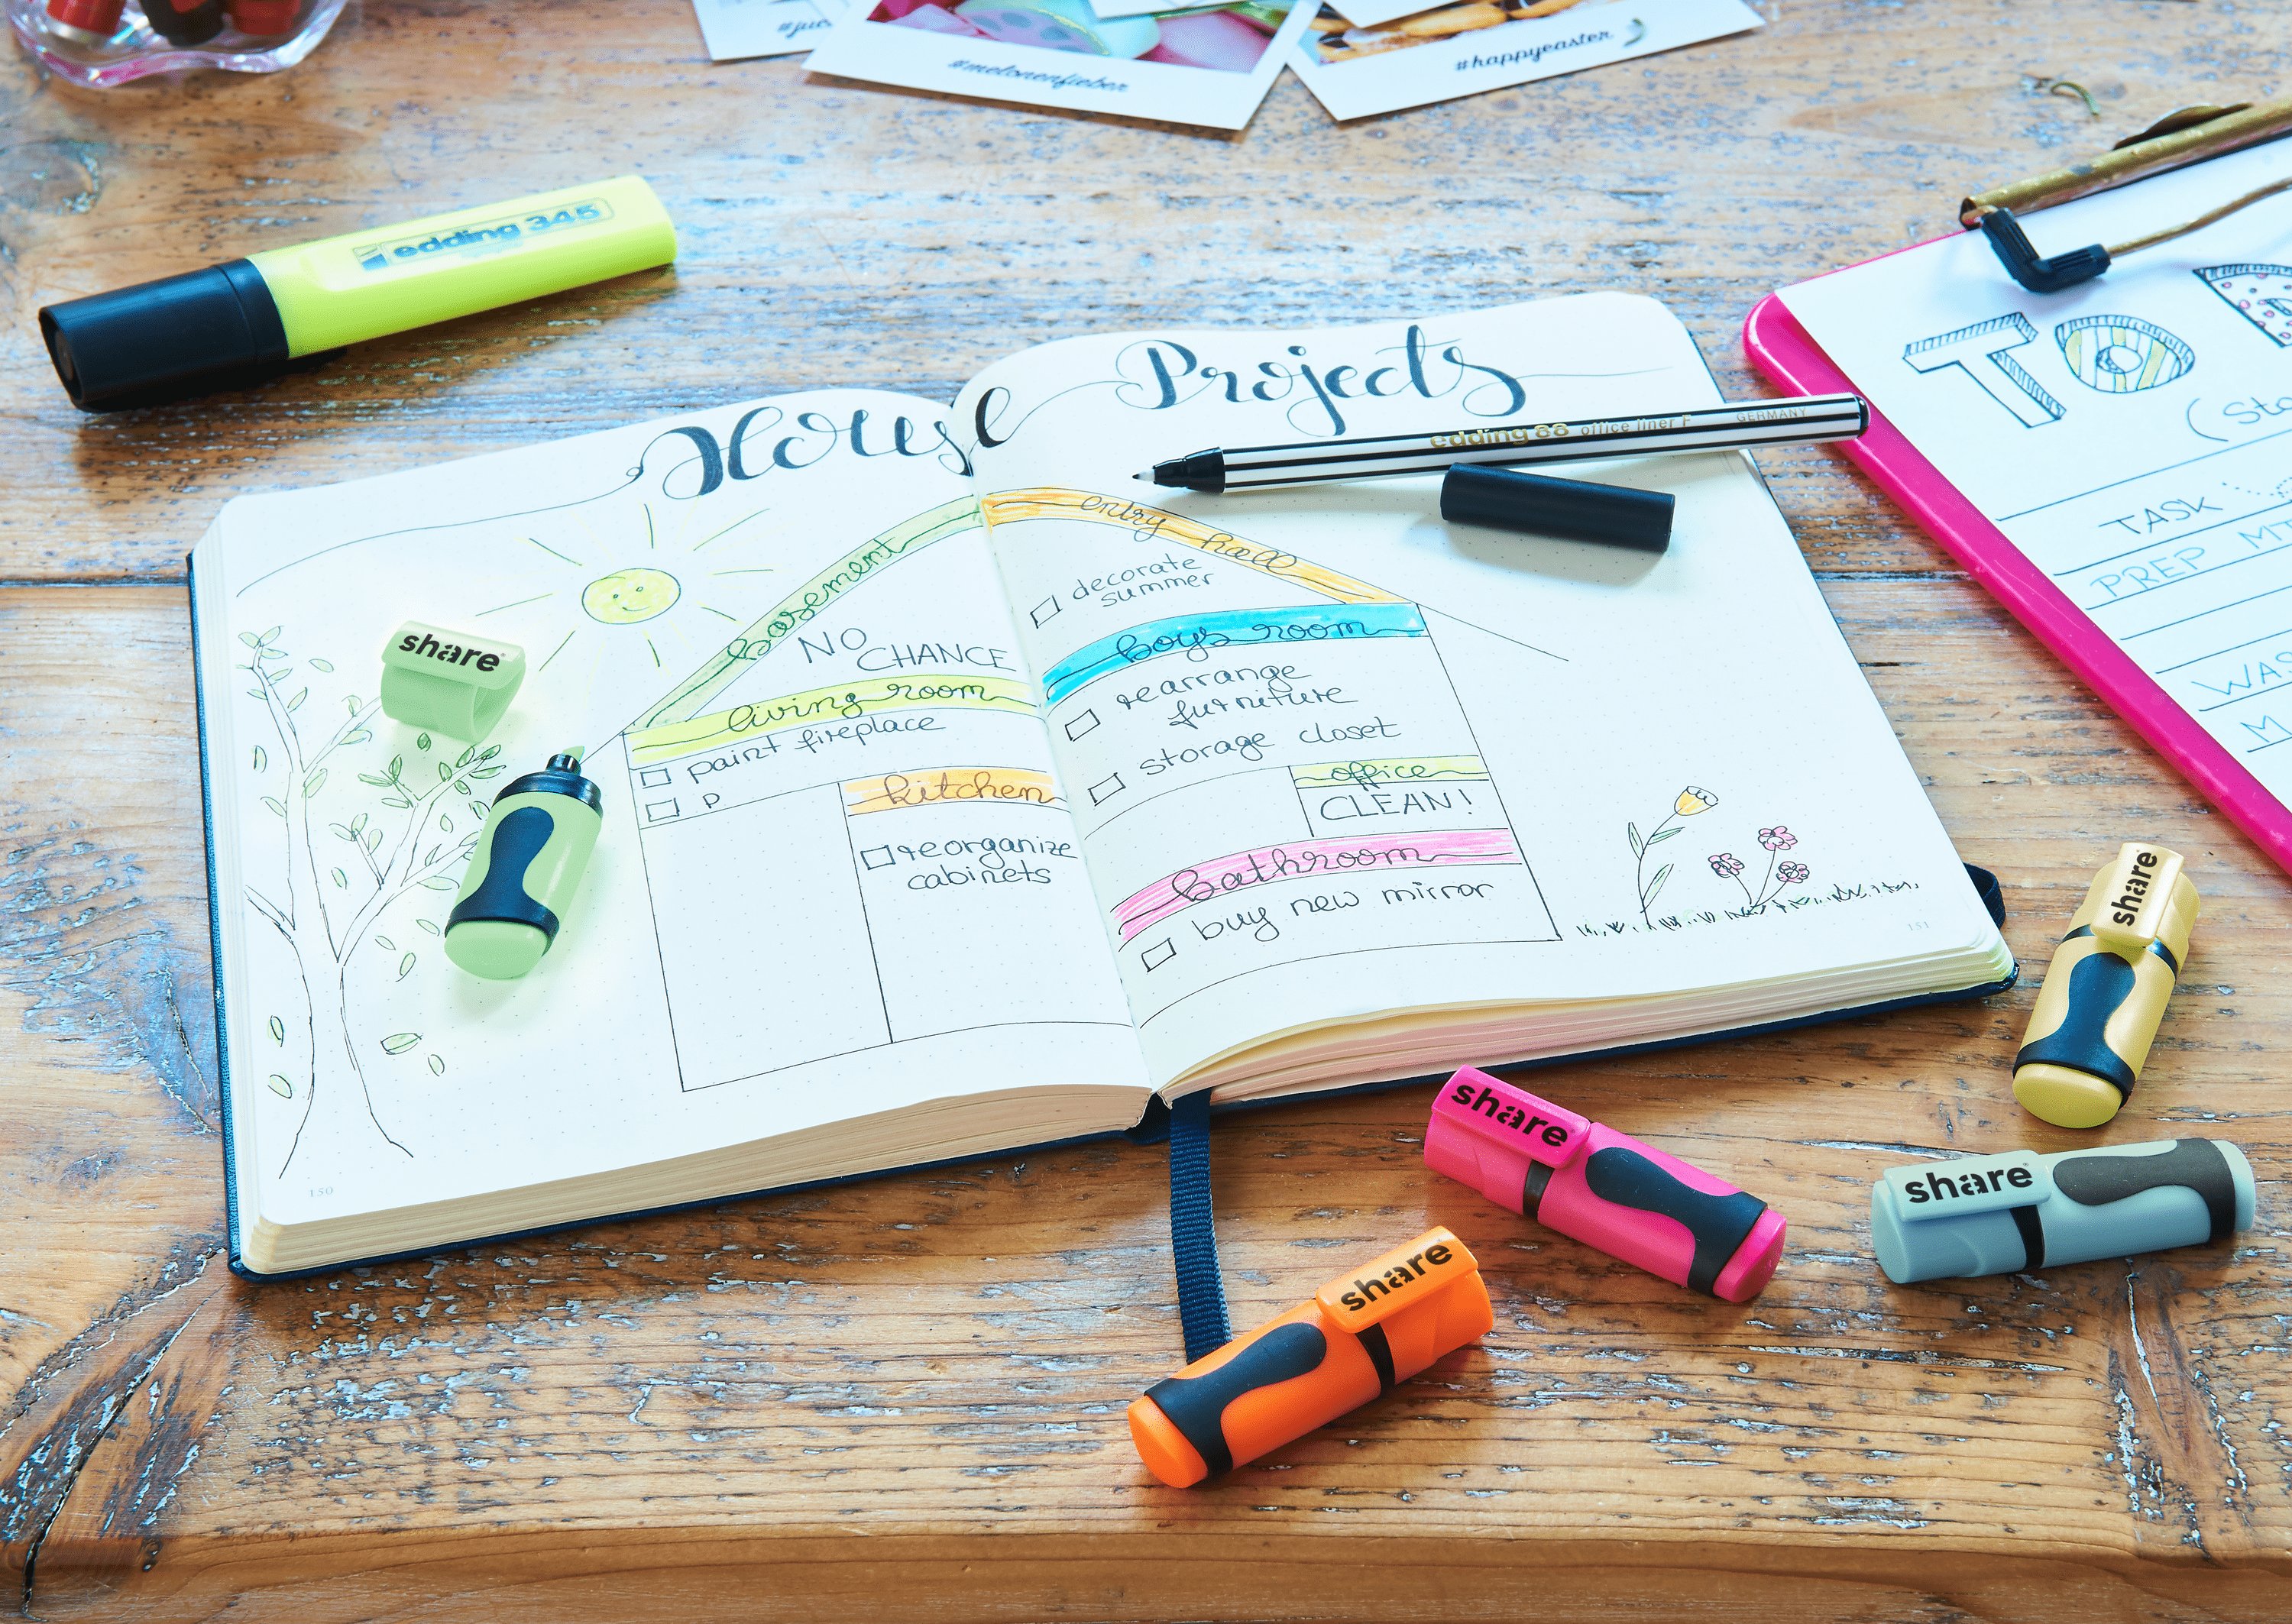 #melonenfieber
#happyeaster
edding 345
House Projects
edding 88 office liner F GERMANY
TO
TASK
PREP
basement
NO
CHANCE
living room
paint fireplace
P
kitchen
reorganize
cabinets
entry hall
decorate
summer
boys room
rearrange
furniture
storage closet
office
CLEAN!
bathroom
buy new mirror
150
151
share
share
share
share
share